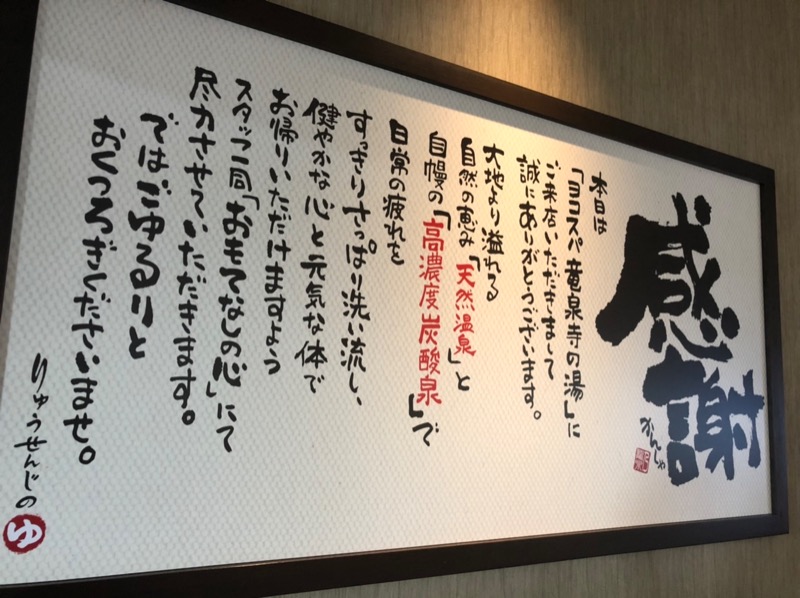 感謝
かんしゃ
本日は
「ヨコスパ 竜泉寺の湯」に
ご来店いただきまして
誠にありがとうございます。
大地より溢れる
自然の恵み「天然温泉」と
自慢の「高濃度炭酸泉」で
日常の疲れを
すっきりさっぱり洗い流し、
健やかな心と元気な体で
お帰りいただけますよう
スタッフ一同「おもてなしの心」にて
尽力させていただきます。
ではごゆるりと
おくつろぎくださいませ。
りゅうせんじの
ゆ